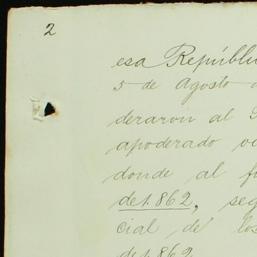 2
esa Repúbli
5 de Agosto
deraron al
apoderado
donde al
de 1.862, seg
cial de los
de 1.862